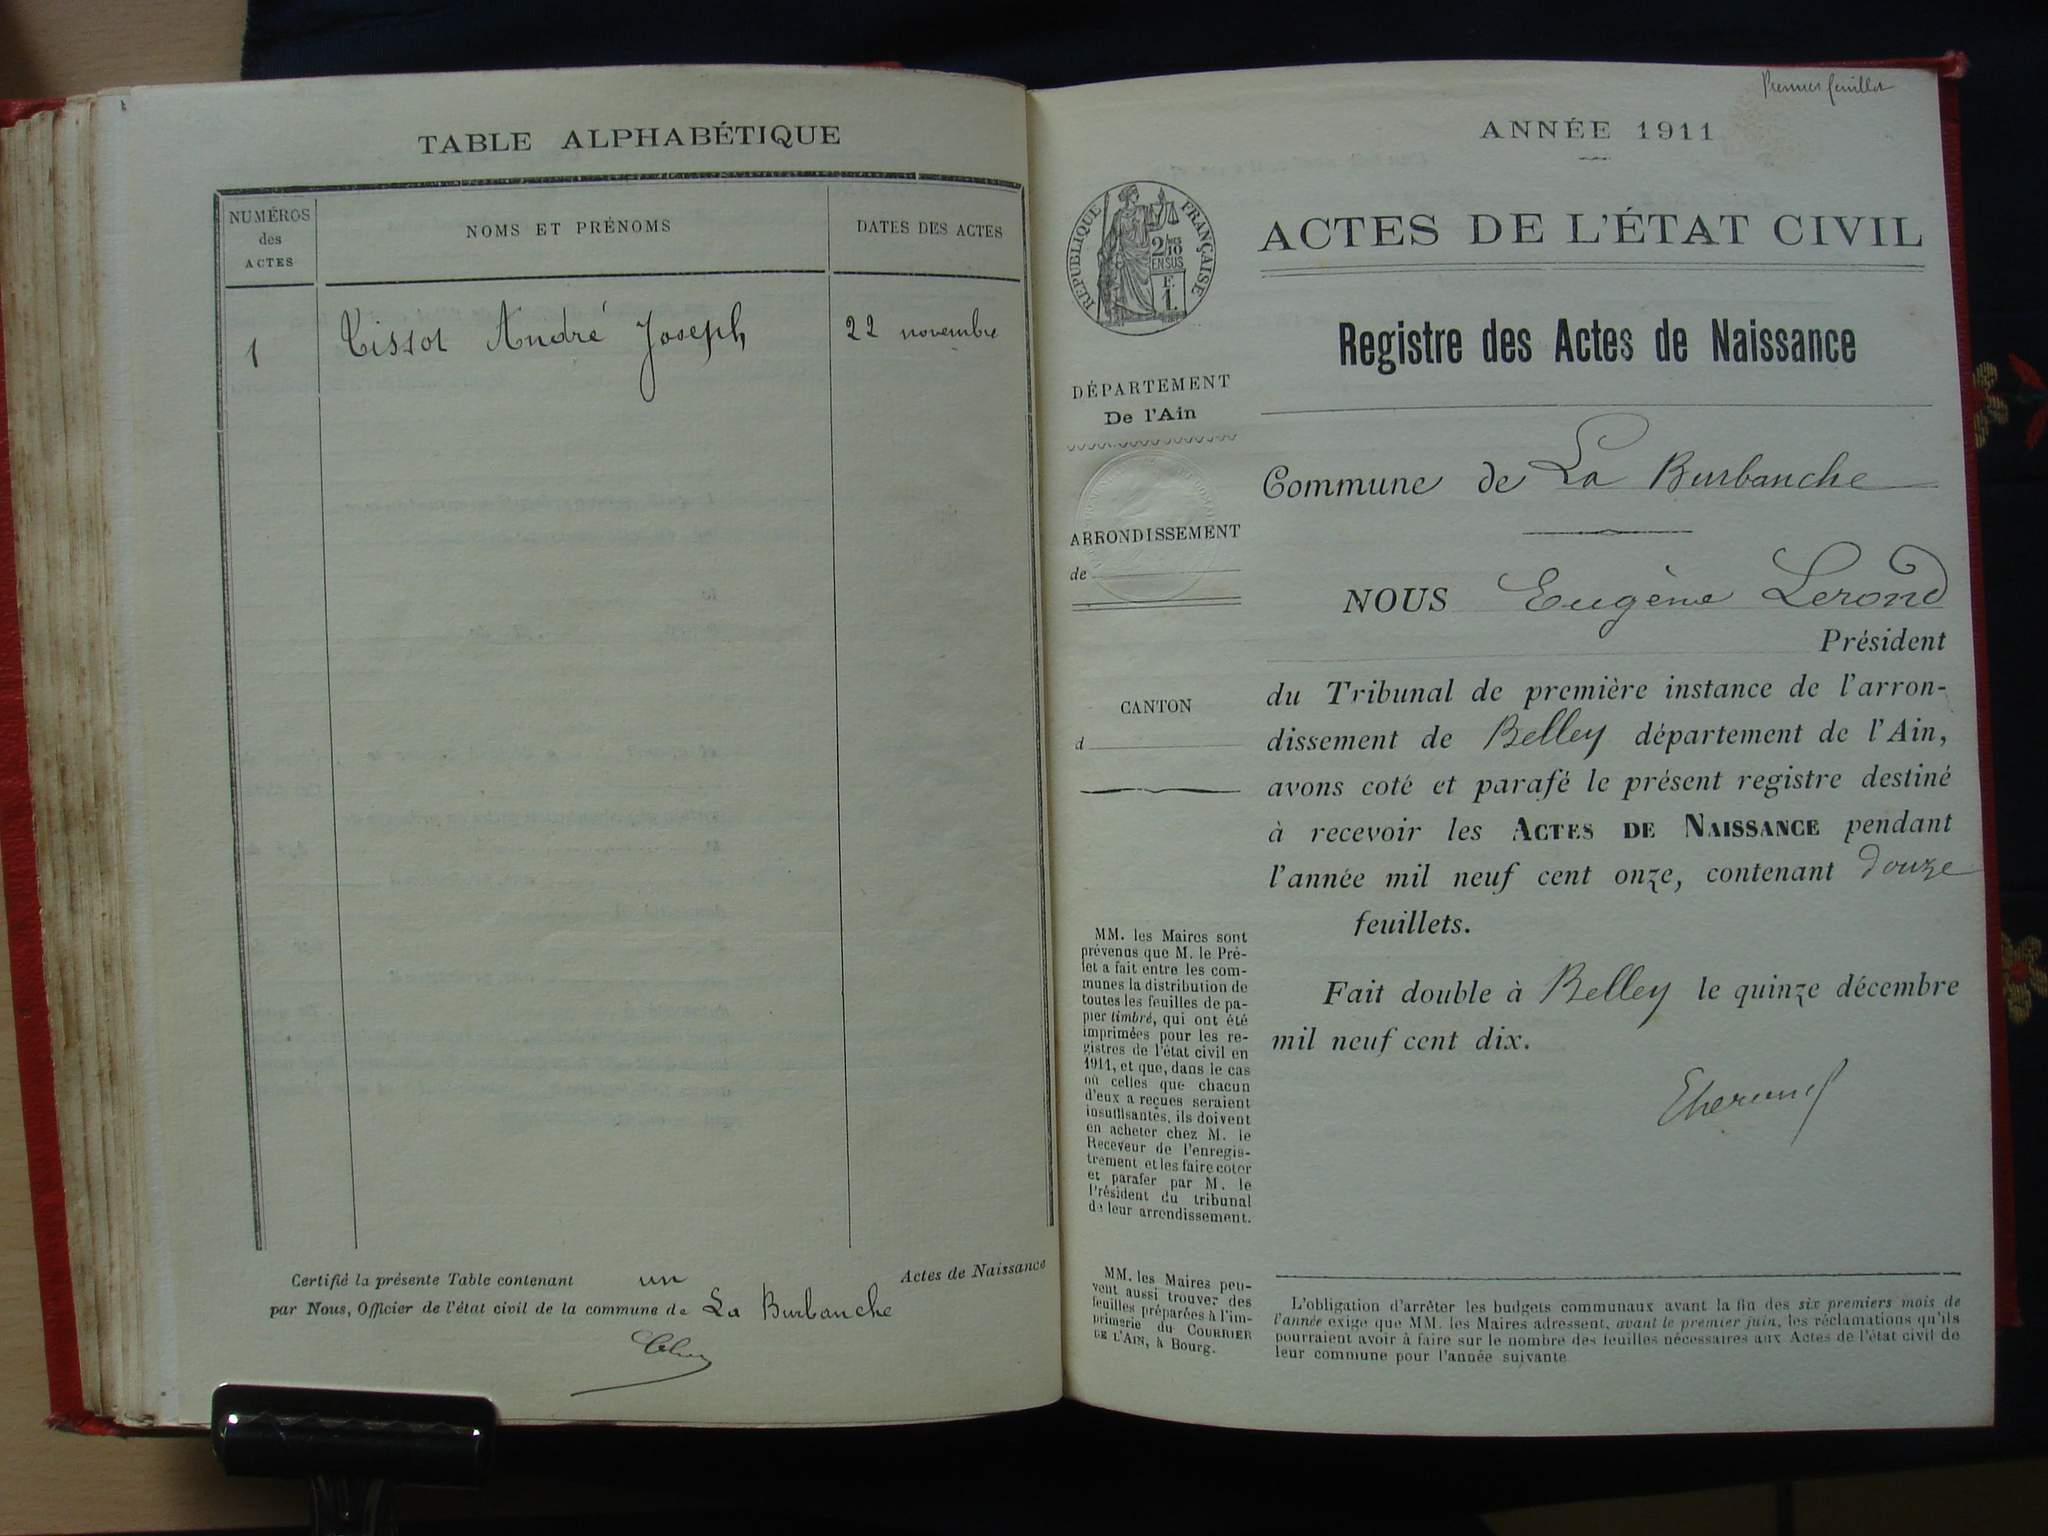 TABLE ALPHABÉTIQUE
NUMÉROS
des
ACTES
NOMS ET PRÉNOMS
DATES DES ACTES
1 Tissot André Joseph 22 novembre
Certifié la présente Table contenant un Actes de Naissance
par Nous, Officier de l'état civil de la commune de La Burbanche
Premier feuillet
ANNÉE 1911
RÉPUBLIQUE FRANÇAISE
2/10
EN SUS
F.
1.
ACTES DE L'ÉTAT CIVIL
Registre des Actes de Naissance
DÉPARTEMENT
De l'Ain
ARRONDISSEMENT
de
CANTON
d
Commune de La Burbanche
NOUS Eugène Lerond
Président
du Tribunal de première instance de l'arron-
dissement de Belley département de l'Ain,
avons coté et parafé le présent registre destiné
à recevoir les ACTES DE NAISSANCE pendant
l'année mil neuf cent onze, contenant douze
feuillets.
Fait double à Belley le quinze décembre
mil neuf cent dix.
MM. les Maires sont
prévenus que M. le Pré-
fet a fait entre les com-
munes la distribution de
toutes les feuilles de pa-
pier timbré, qui ont été
imprimées pour les re-
gistres de l'état civil en
1911, et que, dans le cas
où celles que chacun
d'eux a reçues seraient
insuffisantes, ils doivent
en acheter chez M. le
Receveur de l'enregis-
trement et les faire coter
et parafer par M. le
Président du tribunal
de leur arrondissement.
MM. les Maires peu-
vent aussi trouver des
feuilles préparées à l'im-
primerie du COURRIER
DE L'AIN, à Bourg.
L'obligation d'arrêter les budgets communaux avant la fin des six premiers mois de
l'année exige que MM. les Maires adressent, avant le premier juin, les réclamations qu'ils
pourraient avoir à faire sur le nombre des feuilles nécessaires aux Actes de l'état civil de
leur commune pour l'année suivante